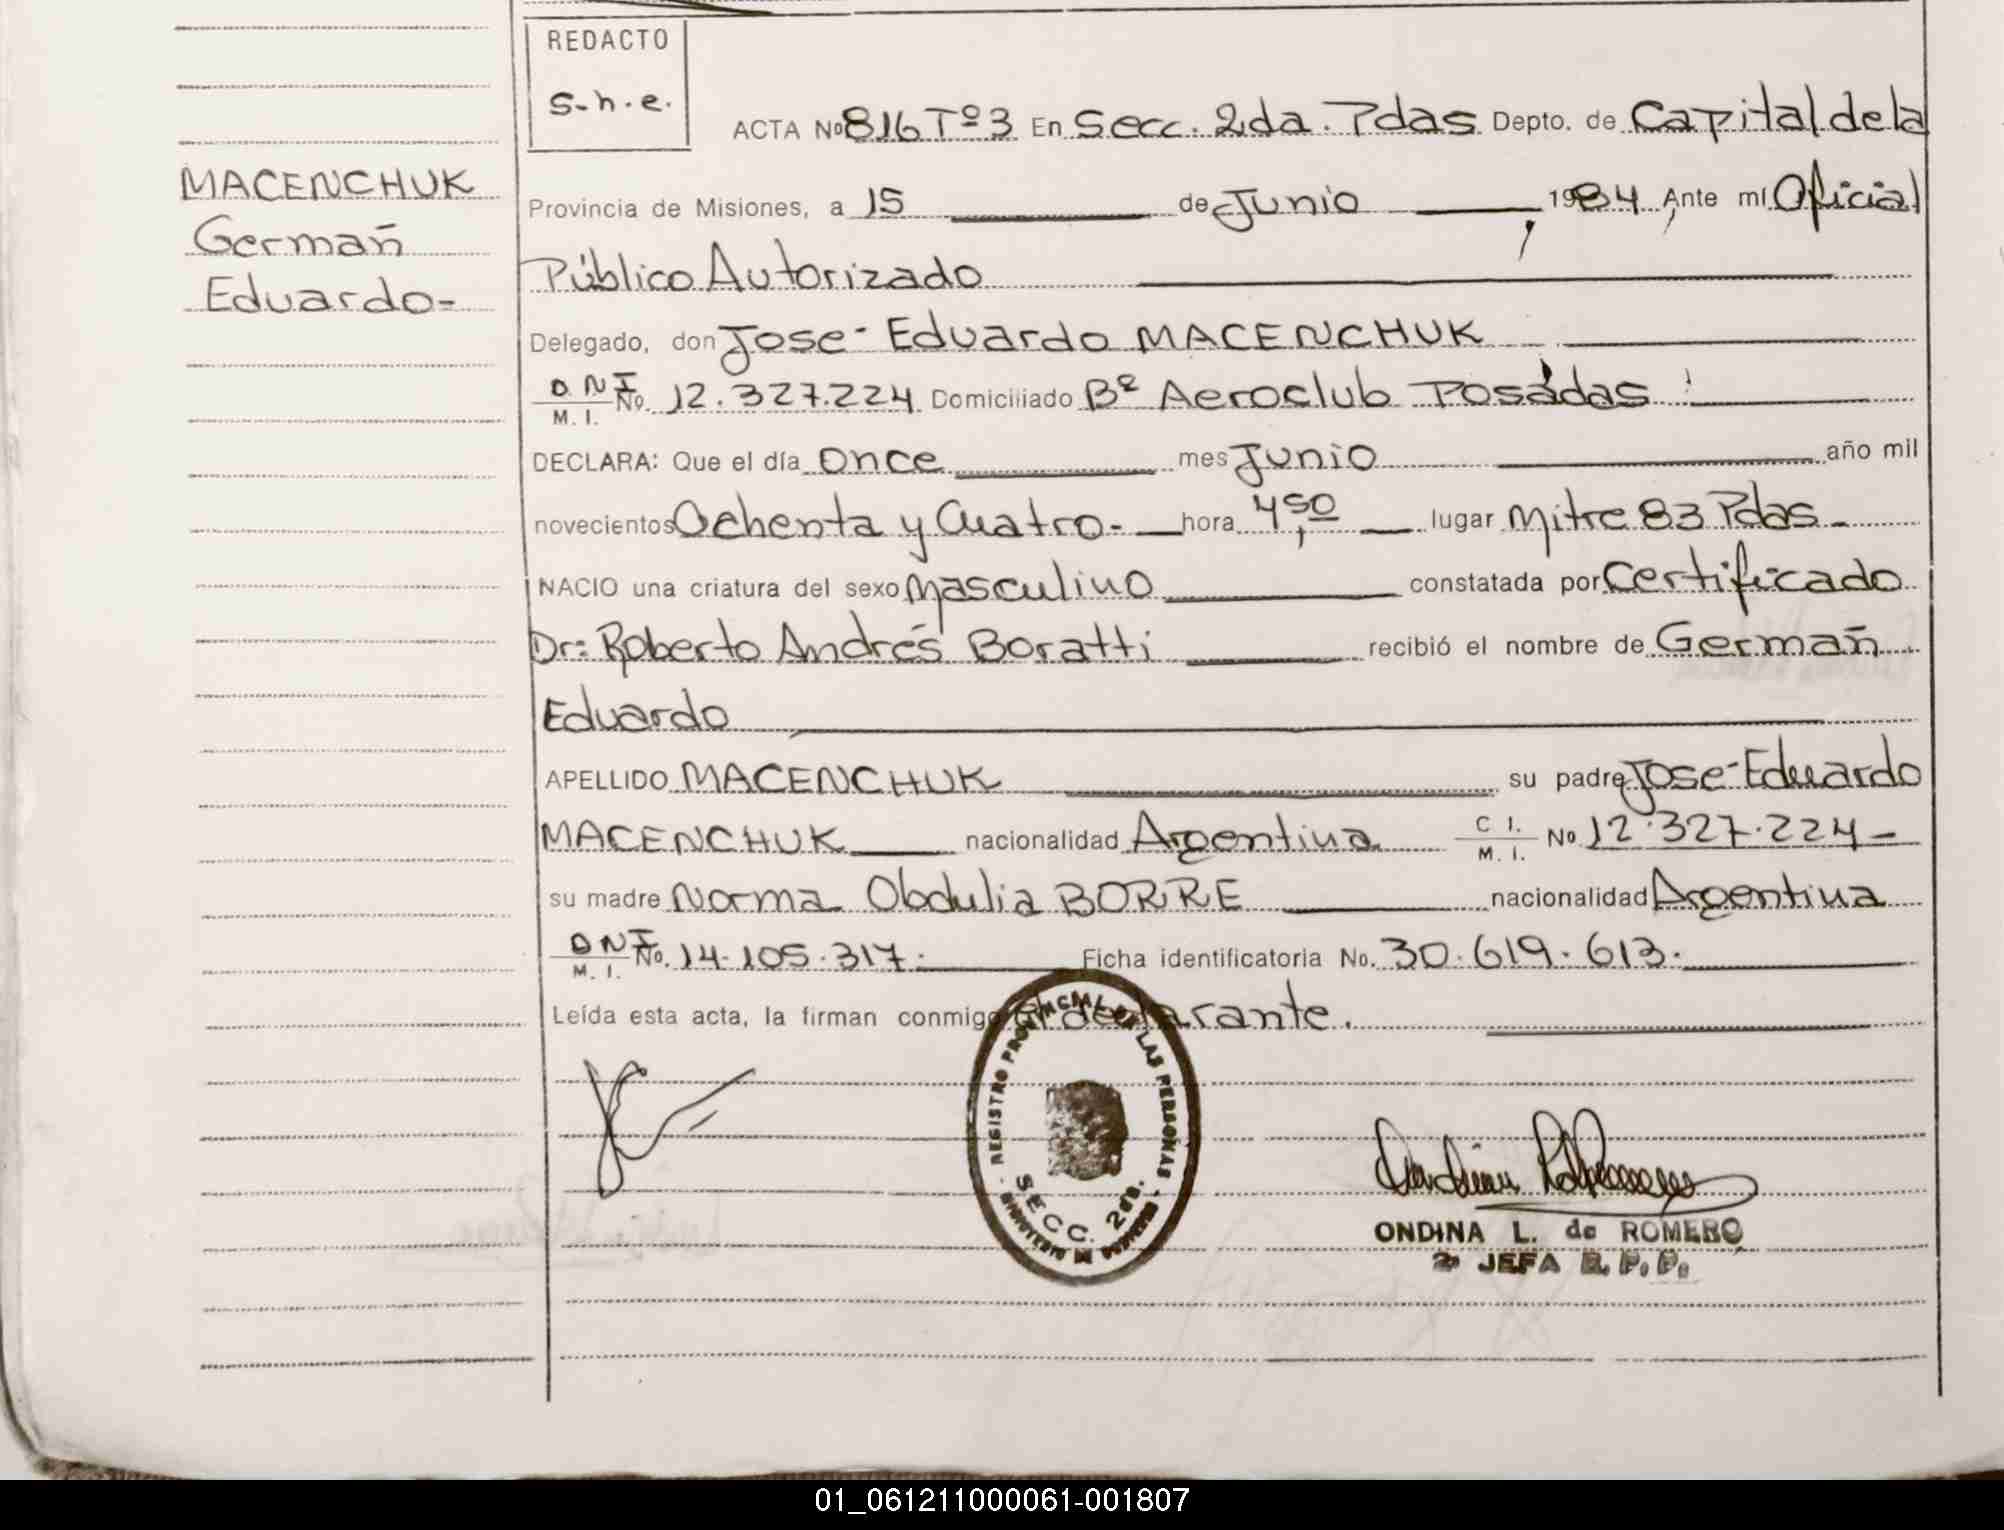 REDACTO
s-h.e.
ACTA No 816 Tº3 En Secc. 2da. Pdas Depto. de Capital de la
MACENCHUK
Germañ
Eduardo-
Provincia de Misiones, a 15 de Junio, 1984, Ante mí Oficial
Público Autorizado
Delegado, don Jose Eduardo MACENCHUK
D N I
M. I. No. 12.327.224 Domiciliado Bº Aeroclub Posadas
DECLARA: Que el día once mes Junio año mil
novecientos Ochenta y Cuatro.- hora 4,50 lugar Mitre 83 Pdas -
NACIO una criatura del sexo Masculino constatada por Certificado
Dr: Roberto Andrés Boratti recibió el nombre de Germañ
Eduardo
APELLIDO MACENCHUK su padre Jose Eduardo
MACENCHUK nacionalidad Argentina C I.
M. I. No 12.327.224-
su madre Norma Obdulia BORRE nacionalidad Argentina
D N I
M. I. No. 14.105.317. Ficha identificatoria No. 30.619.613.
Leída esta acta, la firman conmigo el declarante.
REGISTRO PROVINCIAL DE LAS PERSONAS
SECC. 2da.
MINISTERIO DE GOBIERNO
ONDINA L. de ROMERO
2ª JEFA R. P. P.
01_061211000061-001807